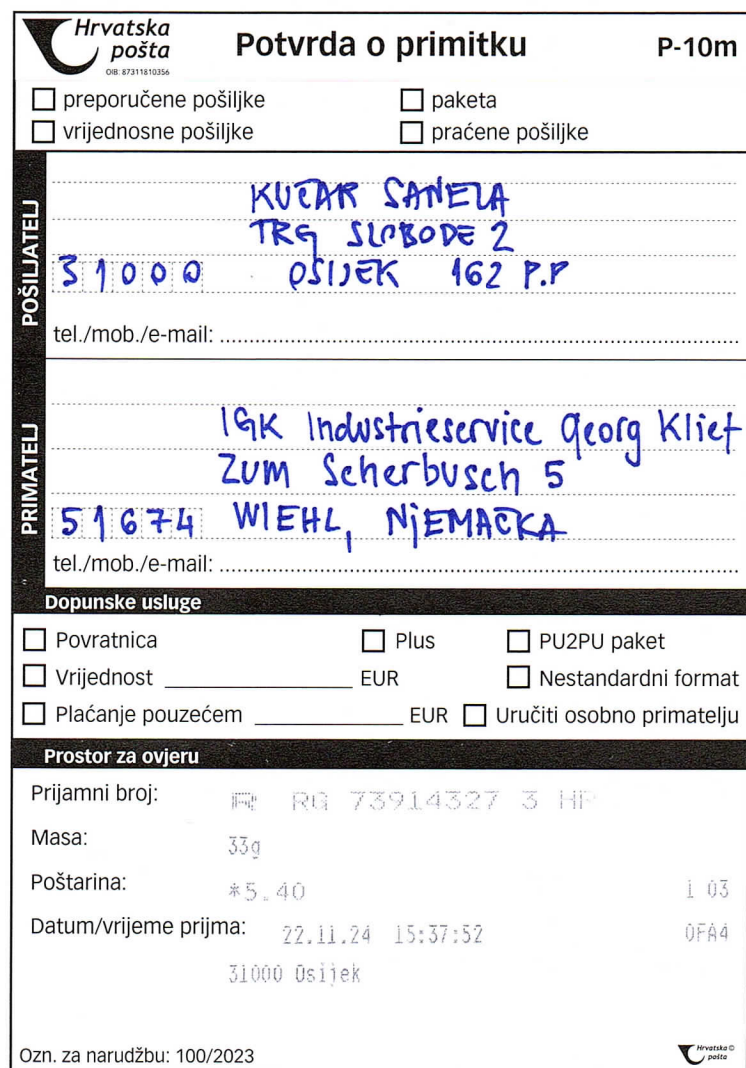 Hrvatska pošta
OIB: 87311810356
Potvrda o primitku
P-10m
preporučene pošiljke
paketa
vrijednosne pošiljke
praćene pošiljke
POŠILJATELJ
KUČAR SANELA
TRG SLOBODE 2
31000 OSIJEK 162 P.P
tel./mob./e-mail:
PRIMATELJ
IGK Industrieservice Georg Klief
Zum Scherbusch 5
51674 WIEHL, NjEMAČKA
tel./mob./e-mail:
Dopunske usluge
Povratnica
Plus
PU2PU paket
Vrijednost EUR
Nestandardni format
Plaćanje pouzećem EUR
Uručiti osobno primatelju
Prostor za ovjeru
Prijamni broj: R RG 73914327 3 HP
Masa: 33g
Poštarina: *5.40 1 03
Datum/vrijeme prijma: 22.11.24 15:37:52 0FA4
31000 Osijek
Ozn. za narudžbu: 100/2023
Hrvatska pošta